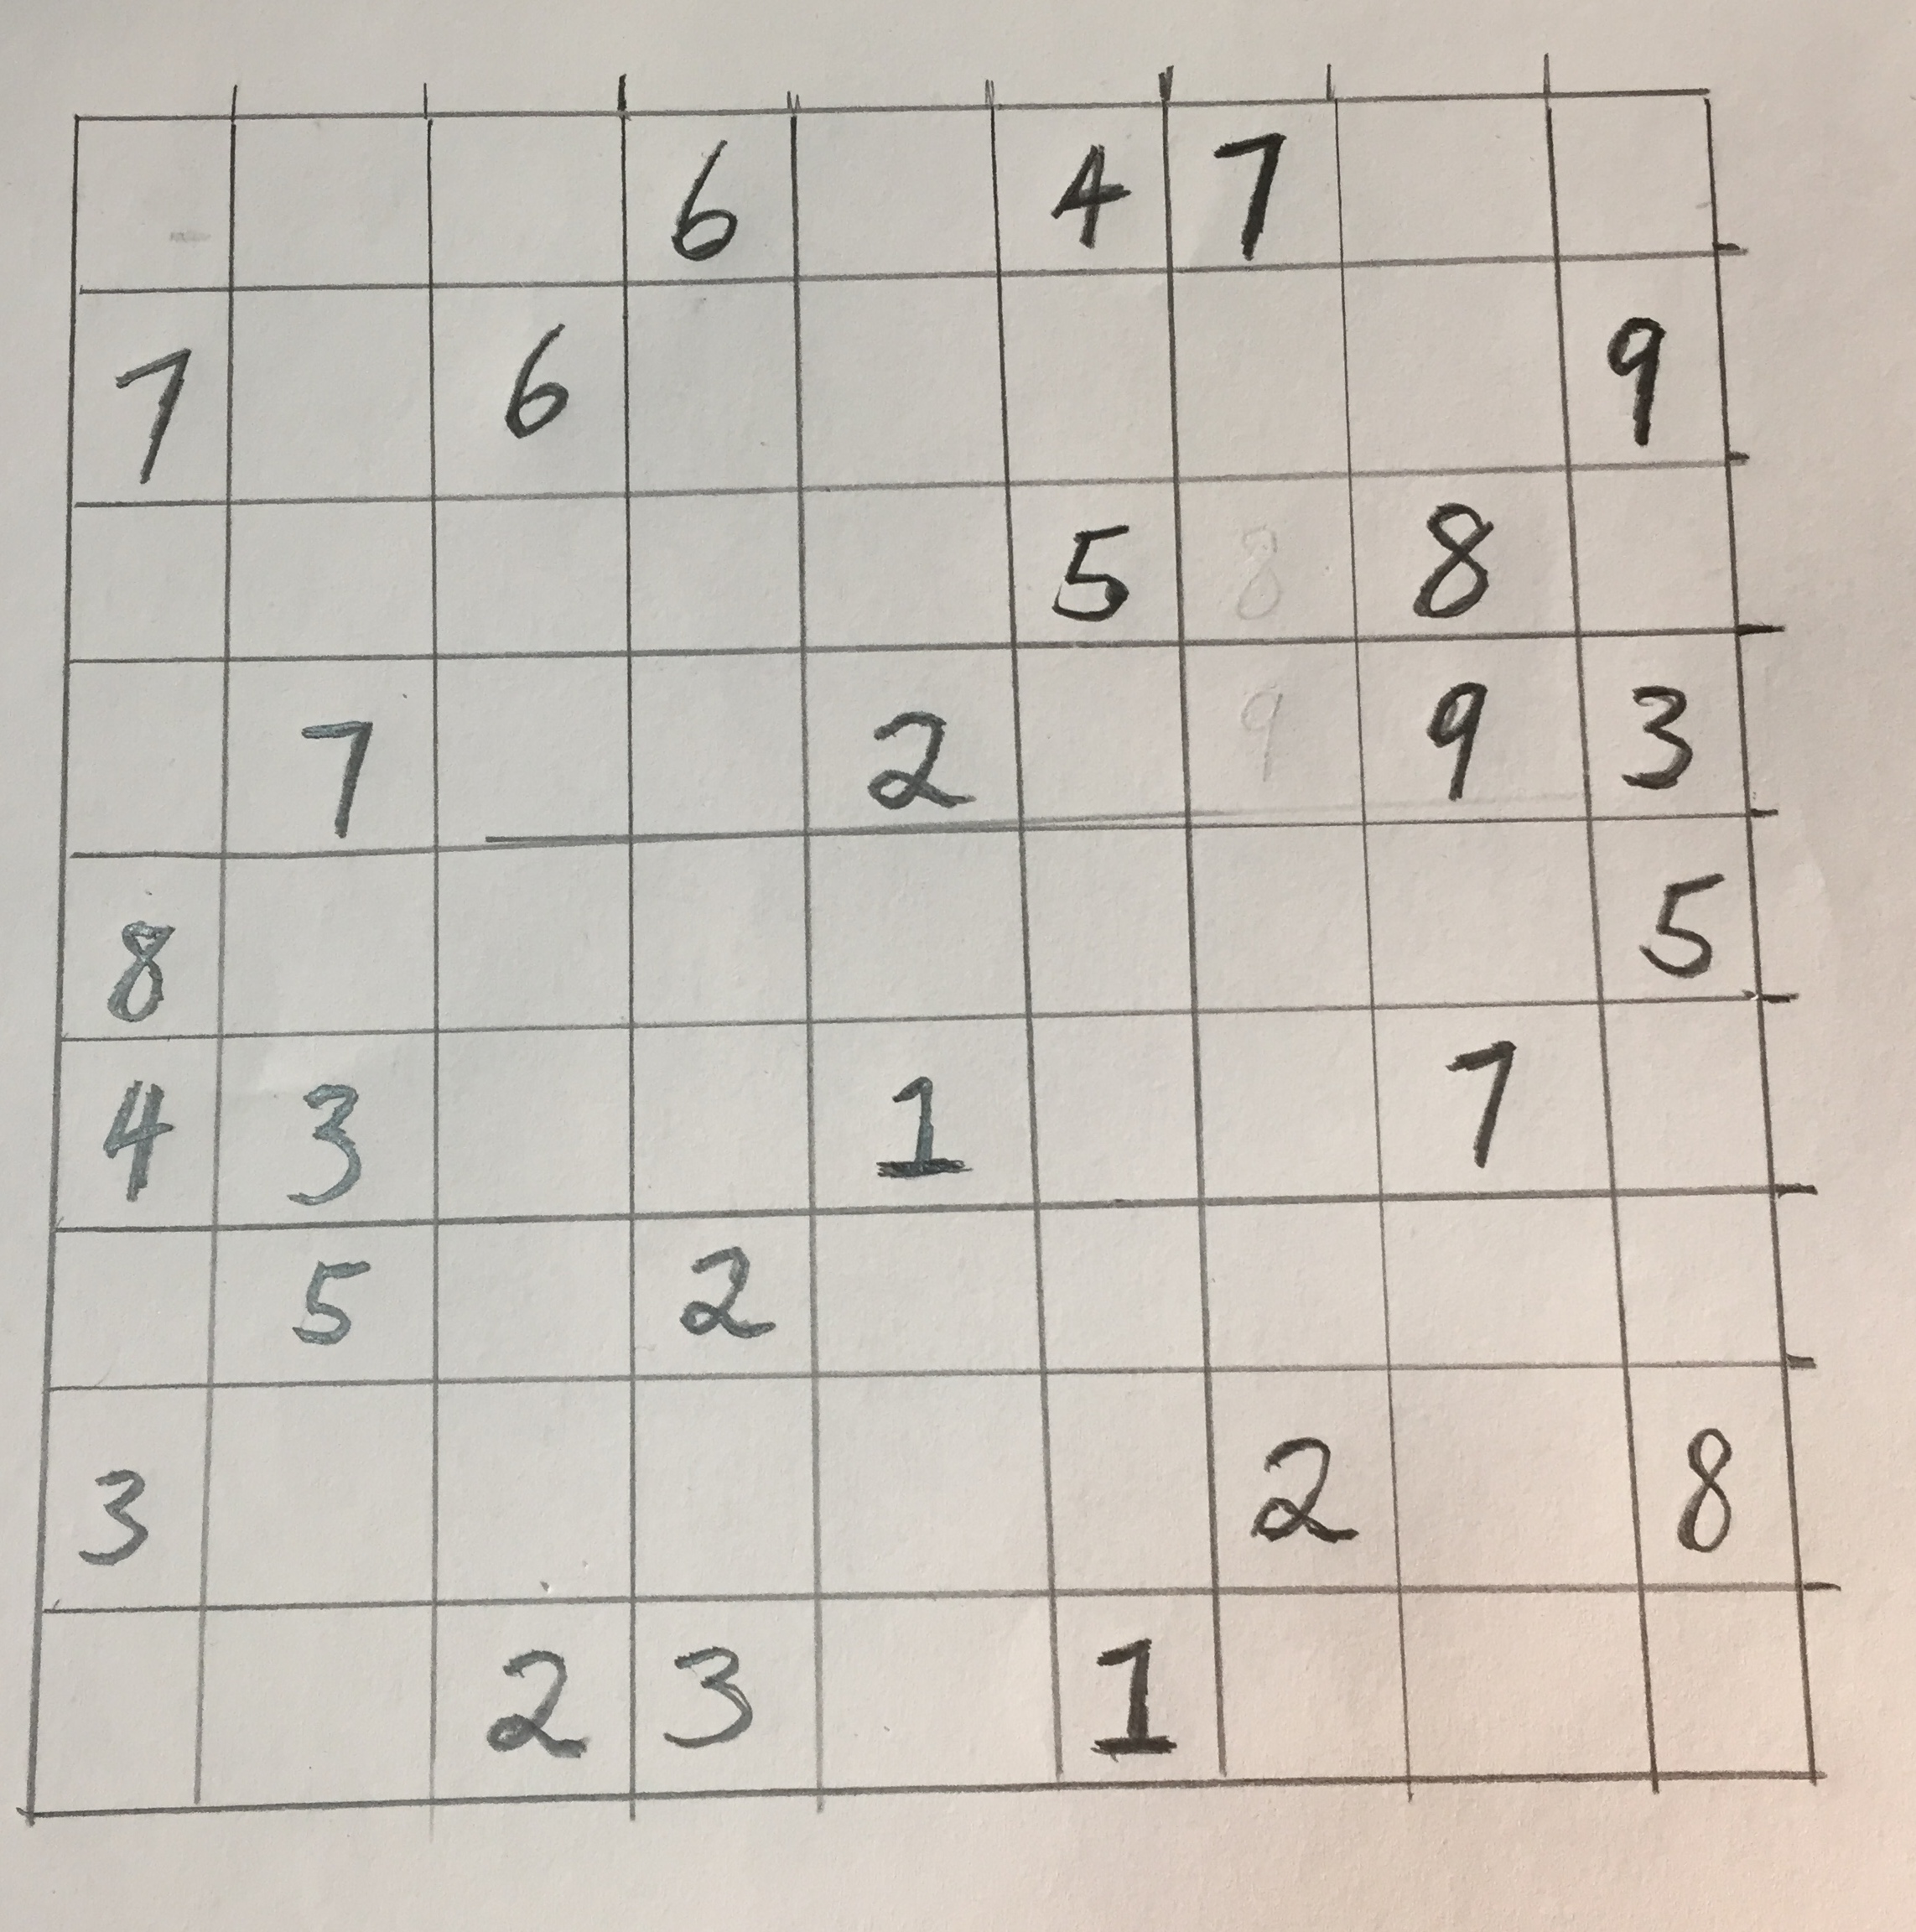 6 4 7
7 6 9
5 8 8
7 2 9 9 3
8 5
4 3 1 7
5 2
3 2 8
2 3 1